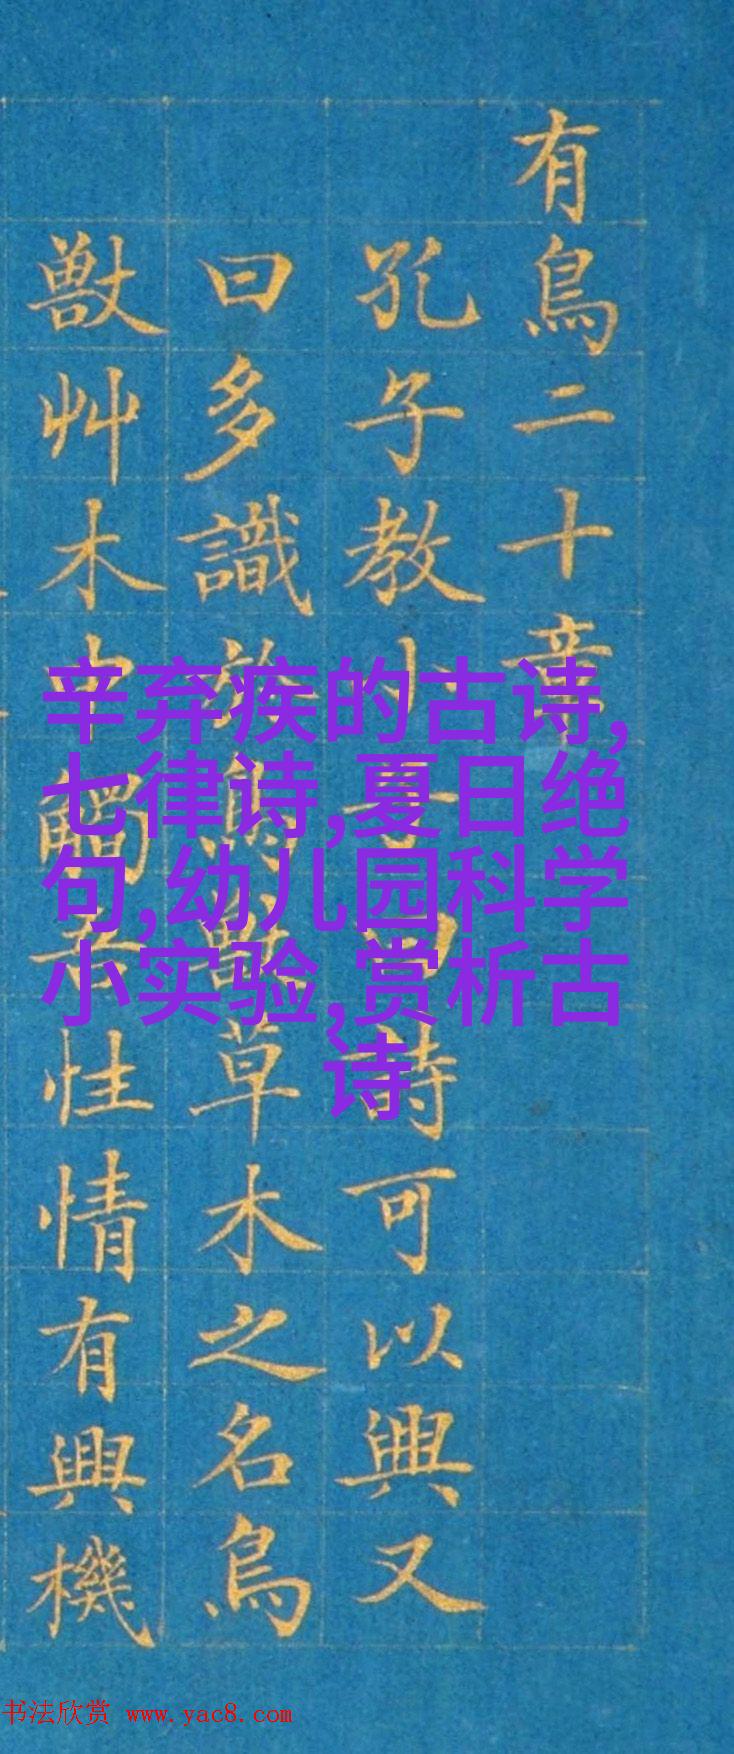 有鳥二十章
孔子教小子曰詩可以興又
曰多識於鳥獸草木之名鳥
獸艸木中觸吾性情有興機
辛弃疾的古诗,
七律诗,夏日绝
句,幼儿园科学
小实验,赏析古
诗
书法欣赏 www.yac8.com